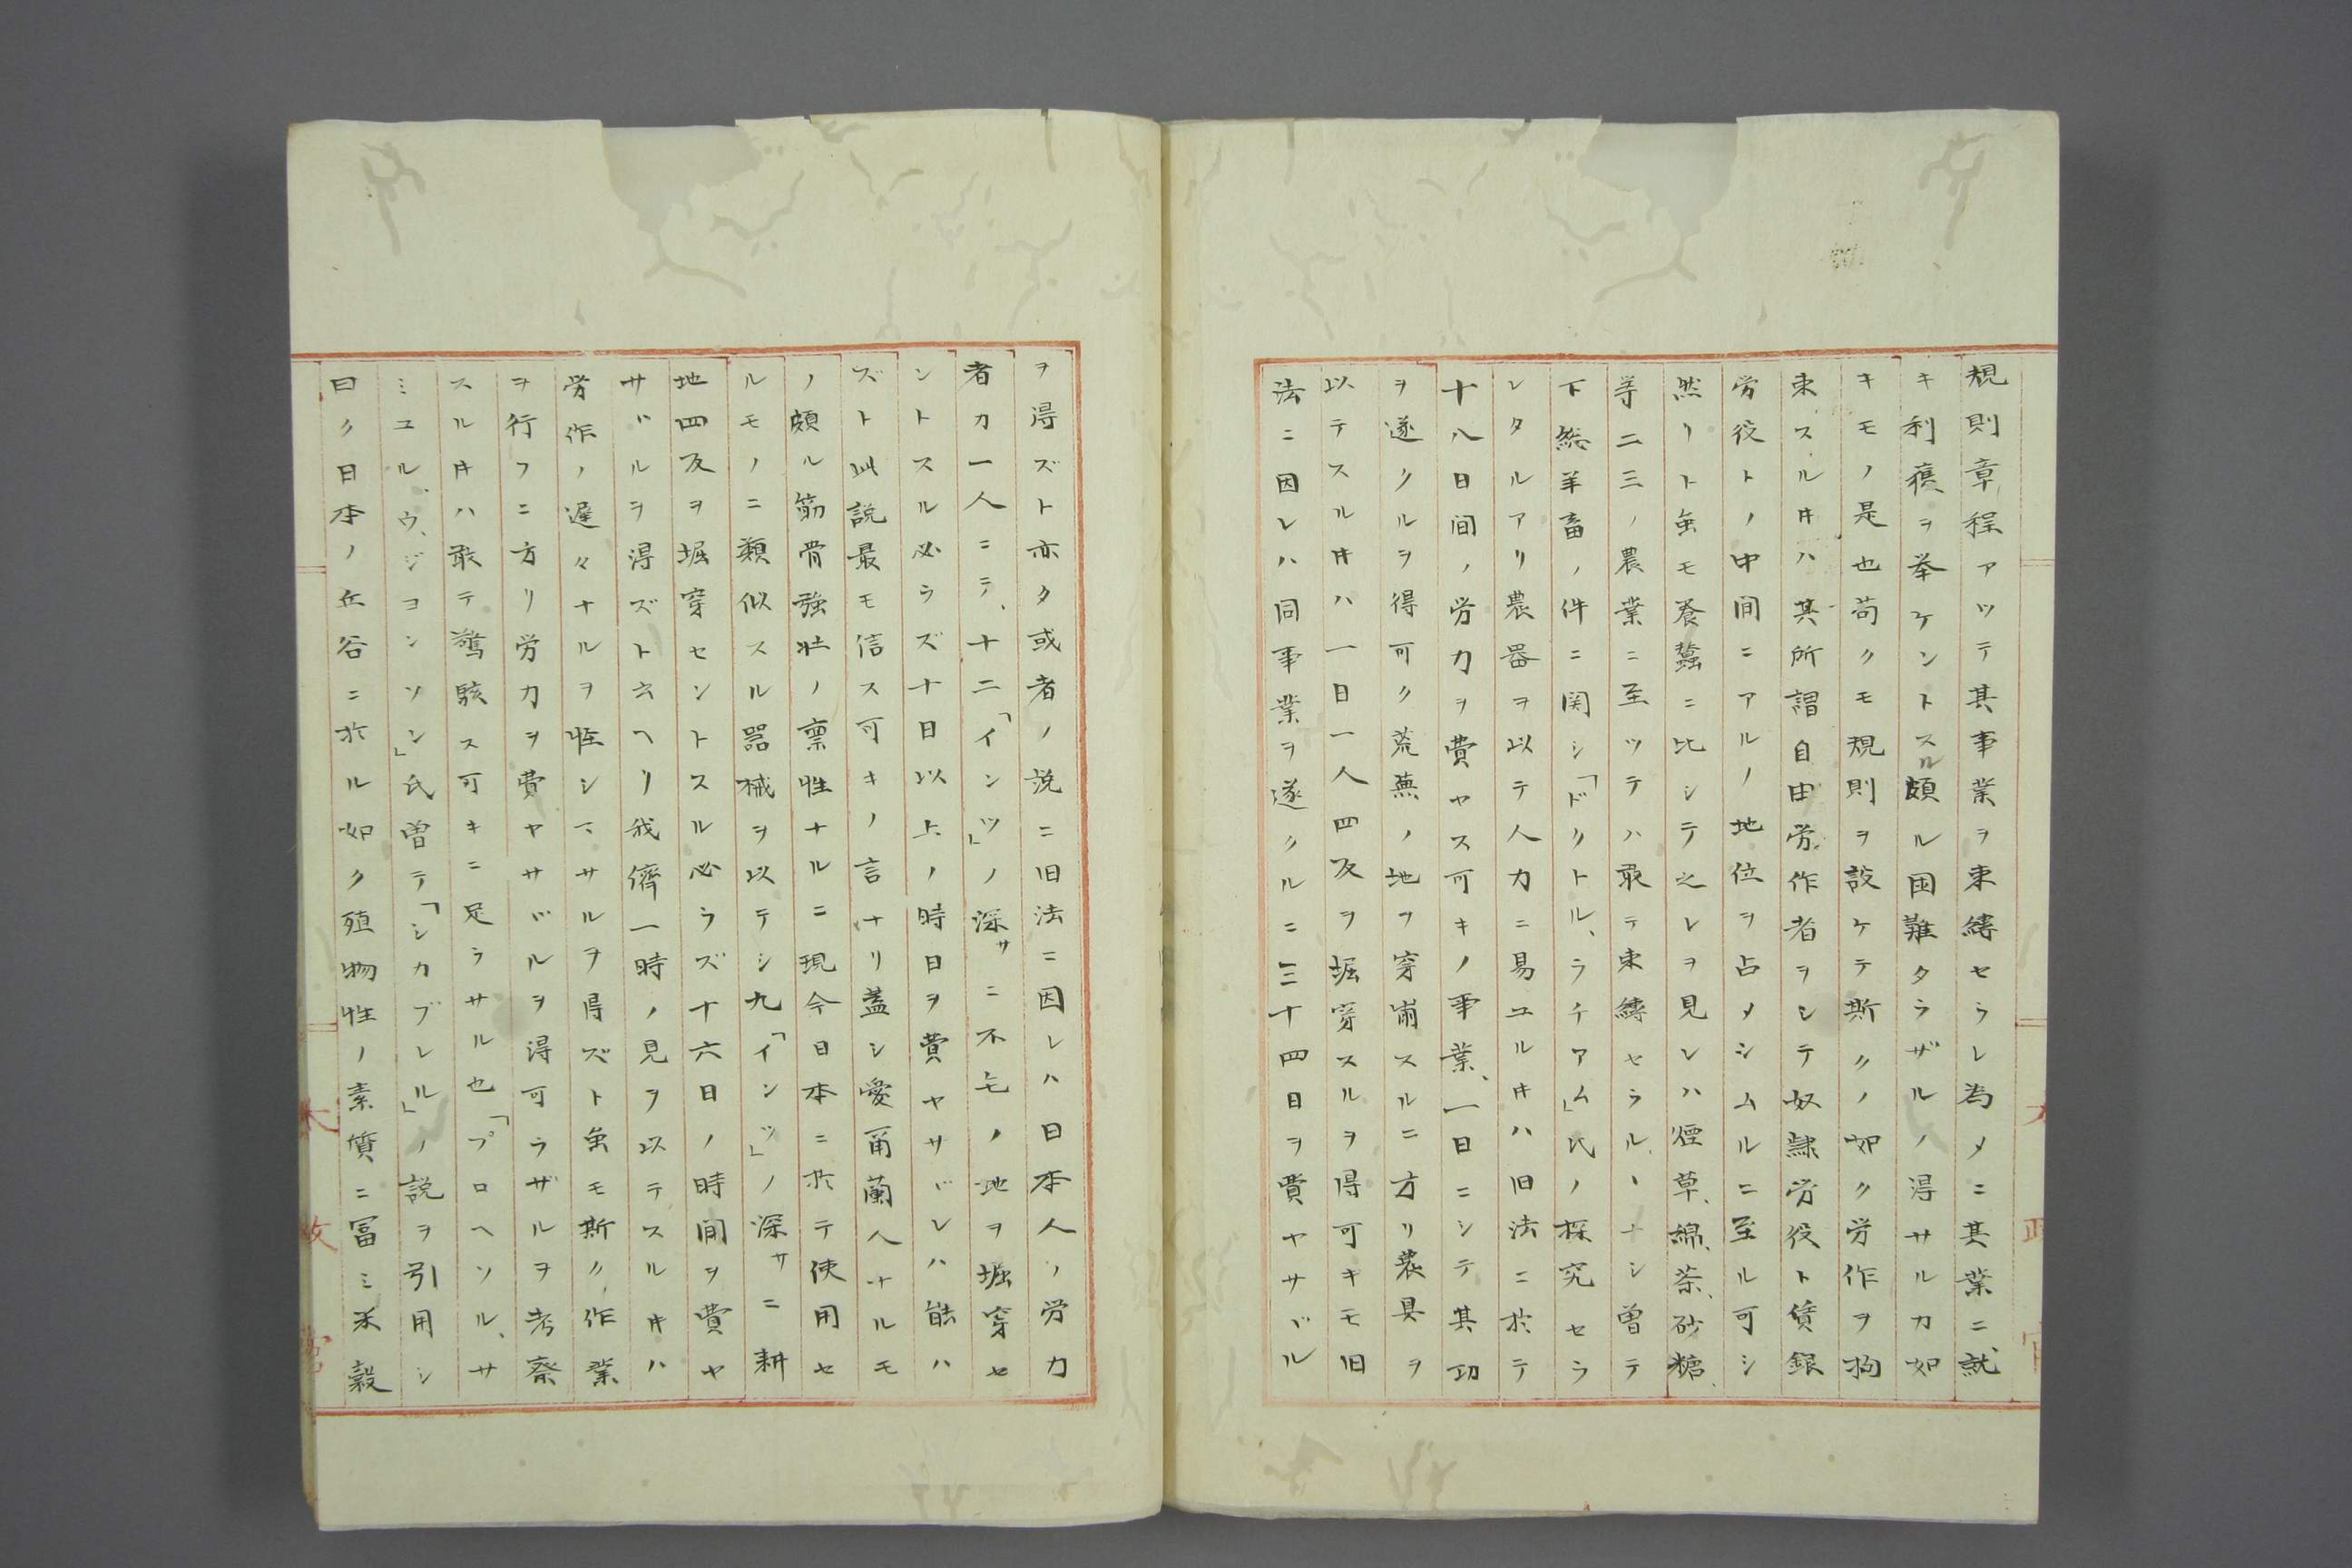 規則章程アツテ其事業ヲ束縛セラレ為メニ其業ニ就
キ利穫ヲ挙ケントスル頗ル困難タラザルノ得サルカ如
キモノ是也苟クモ規則ヲ設ケテ斯クノ如ク労作ヲ拘
束スルキハ其所謂自由労作者ヲシテ奴隷労役ト賃銀
労役トノ中間ニアルノ地位ヲ占メシムルニ至ル可シ
然リト虽モ養蚕ニ比シテ之レヲ見レハ煙草、綿、茶、砂糖、
等二三ノ農業ニ至ツテハ敢テ束縛セラルヽナシ曽テ
下総羊畜ノ件ニ関シ「ドクトル、ラチアム」氏ノ探究セラ
レタルアリ農器ヲ以テ人力ニ易ユルキハ旧法ニ於テ
十八日間ノ労力ヲ費ヤス可キノ事業、一日ニシテ其功
ヲ遂クルヲ得可ク荒蕪ノ地ヲ穿崩スルニ方リ農具ヲ
以テスルキハ一日一人四反ヲ堀穿スルヲ得可キモ旧
法ニ因レハ同事業ヲ遂クルニ三十四日ヲ費ヤサヾル
ヲ得ズト亦タ或者ノ説ニ旧法ニ因レハ日本人ノ労力
者カ一人ニテ、十二「インツ」ノ深サニ不毛ノ地ヲ堀穿セ
ントスル必ラズ十日以上ノ時日ヲ費ヤサヾレハ能ハ
ズト此説最モ信ス可キノ言ナリ蓋シ愛甯蘭人ナルモ
ノ頗ル筋骨強壮ノ禀性ナルニ現今日本ニ於テ使用セ
ルモノニ類似スル器械ヲ以テシ九「インツ」ノ深サニ耕
地四反ヲ堀穿セントスル必ラズ十六日ノ時間ヲ費ヤ
サヾルヲ得ズト云ヘリ我儕一時ノ見ヲ以テスルキハ
労作ノ遅々ナルヲ怪シマサルヲ得ズト虽モ斯ク作業
ヲ行フニ方リ労力ヲ費ヤサヾルヲ得可ラザルヲ考察
スルキハ敢テ驚駭ス可キニ足ラサル也「プロヘソル、サ
ミユル、ウ、ジヨンソン」氏曽テ「シカブレル」ノ説ヲ引用シ
曰ク日本ノ丘谷ニ於ル如ク殖物性ノ素質ニ冨ミ米穀
太政官